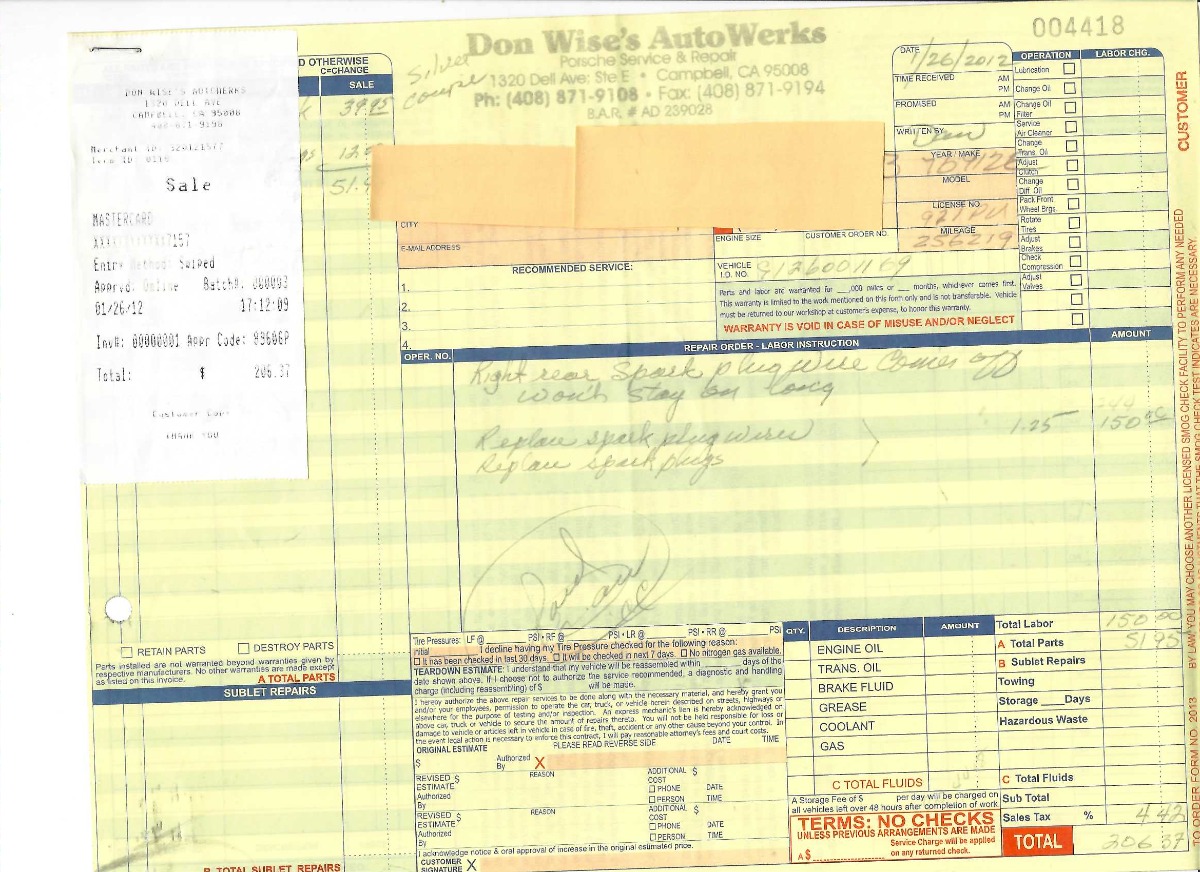 004418
Don Wise's AutoWerks
Porsche Service & Repair
1320 Dell Ave: Ste E • Campbell, CA 95008
Ph: (408) 871-9108 • Fax: (408) 871-9194
B.A.R. # AD 239028
Silver
coupe
DATE 1/26/2012
TIME RECEIVED AM
PM
PROMISED AM
PM
WRITTEN BY
YEAR / MAKE
MODEL
LICENSE NO.
MILEAGE
256219
OPERATION LABOR CHG.
Lubrication
Change Oil
Change Oil
Filter
Service
Air Cleaner
Change
Trans. Oil
Adjust
Clutch
Change
Diff. Oil
Pack Front
Wheel Brgs.
Rotate
Tires
Adjust
Brakes
Check
Compression
Adjust
Valves
CUSTOMER
D OTHERWISE
C=CHANGE
SALE
39.95
DON WISE'S AUTOWERKS
1320 DELL AVE
CAMPBELL, CA 95008
Sale
MASTERCARD
7157
Entry Method: Swiped
Apprvd: Online Batch#: 000003
01/26/12 17:12:09
Inv#: 00000001 Appr Code:
Total: $ 206.37
Customer Copy
THANK YOU
CITY
E-MAIL ADDRESS
ENGINE SIZE CUSTOMER ORDER NO.
RECOMMENDED SERVICE:
1.
2.
3.
4.
VEHICLE
I.D. NO. 9126001169
Parts and labor are warranted for ___,000 miles or ___ months, whichever comes first.
This warranty is limited to the work mentioned on this form only and is not transferable. Vehicle
must be returned to our workshop at customer's expense, to honor this warranty.
WARRANTY IS VOID IN CASE OF MISUSE AND/OR NEGLECT
OPER. NO. REPAIR ORDER - LABOR INSTRUCTION AMOUNT
Right rear spark plug wire comes off
wont stay on long
Replace spark plug wires 1.25 150.00
Replace spark plugs
RETAIN PARTS DESTROY PARTS
Parts installed are not warranted beyond warranties given by
respective manufacturers. No other warranties are made except
as listed on this invoice.
A TOTAL PARTS
SUBLET REPAIRS
B TOTAL SUBLET REPAIRS
Tire Pressures: LF @ PSI • RF @ PSI • LR @ PSI • RR @ PSI
Initial I decline having my Tire Pressure checked for the following reason:
It has been checked in last 30 days. It will be checked in next 7 days. No nitrogen gas available.
TEARDOWN ESTIMATE: I understand that my vehicle will be reassembled within ______ days of the
date shown above, if I choose not to authorize the service recommended, a diagnostic and handling
charge (including reassembling) of $ ______ will be made.
I hereby authorize the above repair services to be done along with the necessary material, and hereby grant you
and/or your employees, permission to operate the car, truck, or vehicle herein described on streets, highways or
elsewhere for the purpose of testing and/or inspection. An express mechanic's lien is hereby acknowledged on
above car, truck or vehicle to secure the amount of repairs thereto. You will not be held responsible for loss or
damage to vehicle or articles left in vehicle in case of fire, theft, accident or any other cause beyond your control. In
the event legal action is necessary to enforce this contract, I will pay reasonable attorney's fees and court costs.
ORIGINAL ESTIMATE PLEASE READ REVERSE SIDE DATE TIME
$ Authorized
By X
REVISED $
ESTIMATE REASON ADDITIONAL $
COST
Authorized
By PHONE DATE
PERSON TIME
REVISED $
ESTIMATE REASON ADDITIONAL $
COST
Authorized
By PHONE DATE
PERSON TIME
I acknowledge notice & oral approval of increase in the original estimated price.
CUSTOMER
SIGNATURE X
QTY. DESCRIPTION AMOUNT
ENGINE OIL
TRANS. OIL
BRAKE FLUID
GREASE
COOLANT
GAS
C TOTAL FLUIDS
A Storage Fee of $ per day will be charged on
all vehicles left over 48 hours after completion of work
TERMS: NO CHECKS
UNLESS PREVIOUS ARRANGEMENTS ARE MADE
A $ Service Charge will be applied
on any returned check.
Total Labor 150 00
A Total Parts 51.95
B Sublet Repairs
Towing
Storage ____ Days
Hazardous Waste
C Total Fluids
Sub Total
Sales Tax % 4.42
TOTAL 206 37
BY LAW YOU MAY CHOOSE ANOTHER LICENSED SMOG CHECK FACILITY TO PERFORM ANY NEEDED
TO ORDER FORM NO. 2013